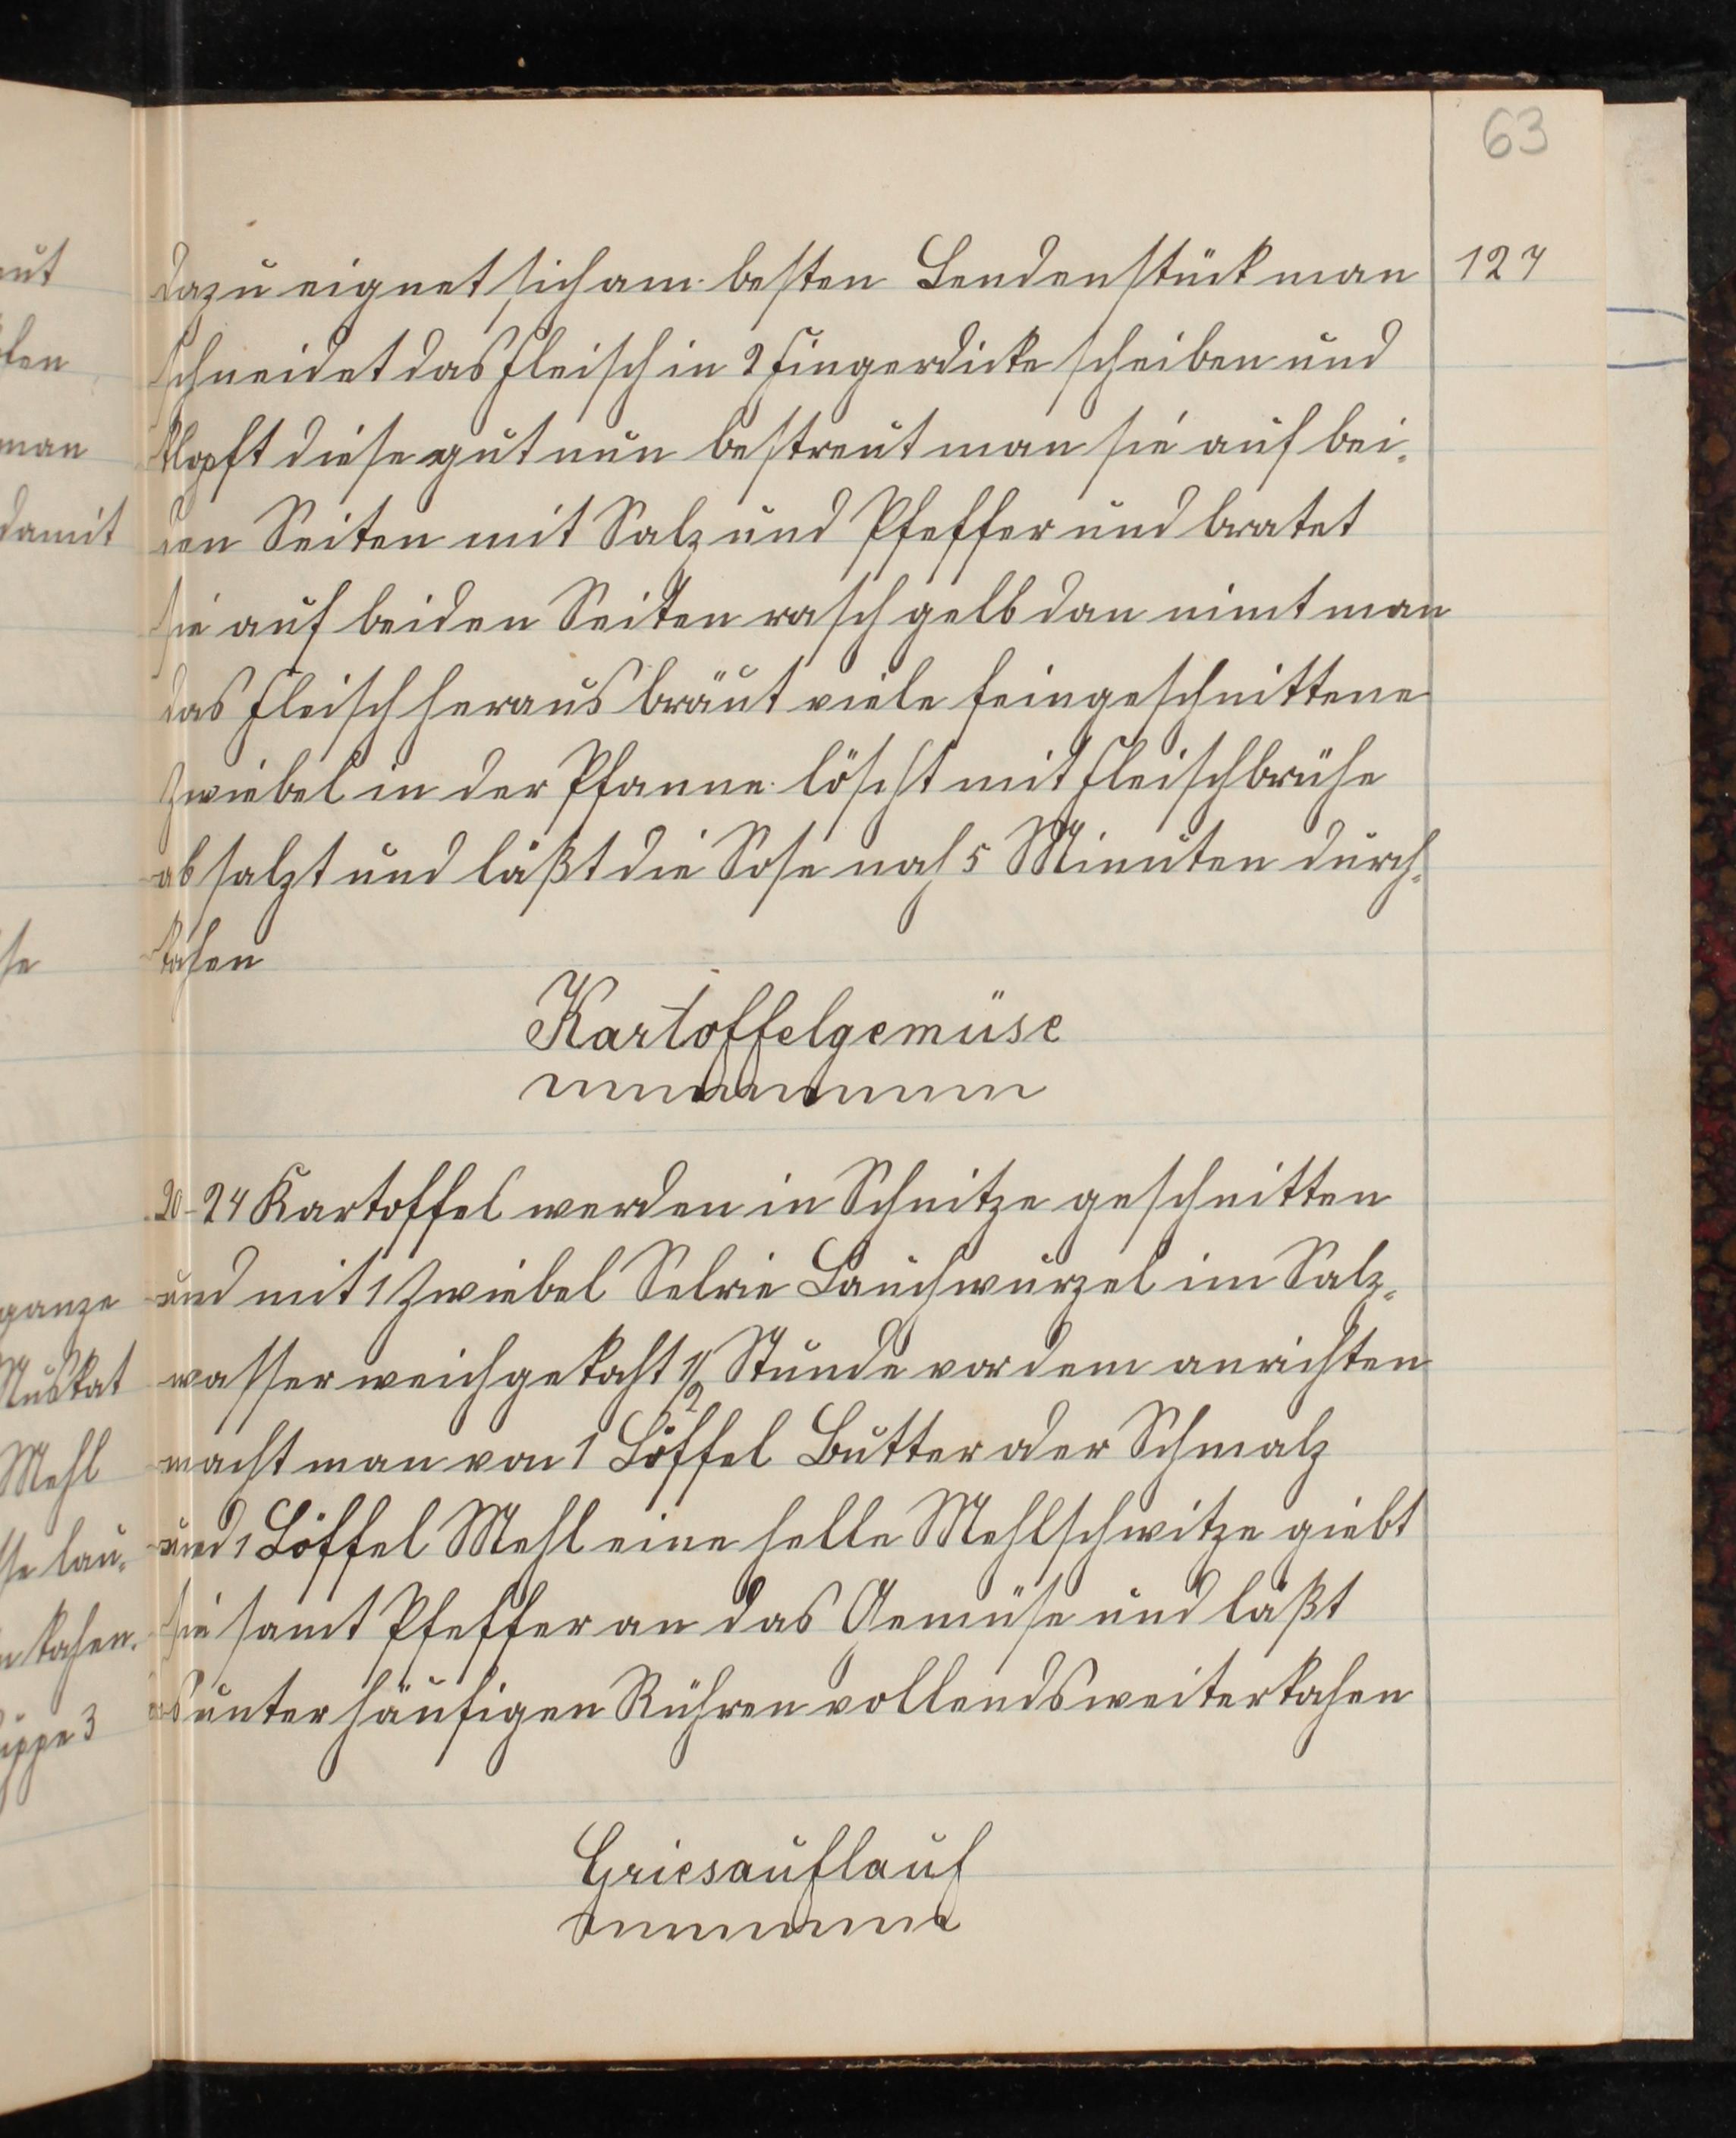 63
127
dazu eignet sich am besten Lendenstück man
schneidet das Fleisch in 2 Fingerdicke scheiben und
klopft diese gut nun bestreut man sie auf bei„
den Seiten mit Salz und Pfeffer und bratet
sie auf beiden Seiten rasch gelb dan nimt man
das Fleisch heraus bräut viele feingeschnittene
Zwiebel in der Pfanne löscht mit Fleischbrühe
ab salzt und läßt die Sose noch 5 Minuten durch„
kochen
Kartoffelgemüse
20-24 Kartoffel werden in Schnitze geschnitten
und mit 1 Zwiebel Selrie Lauchwurzel im Salz„
wasser weichgekocht 1/2 Stunde vor dem anrichten
macht man von 1 Löffel Butter oder Schmalz
und 1 Löffel Mehl eine helle Mehlschwitze giebt
sie samt Pfeffer an das Gemüse und läßt
es unter häufigen Rühren vollends weiterkochen
Griesauflauf
man
damit
ganze
Muskat
Mehl
kochen.